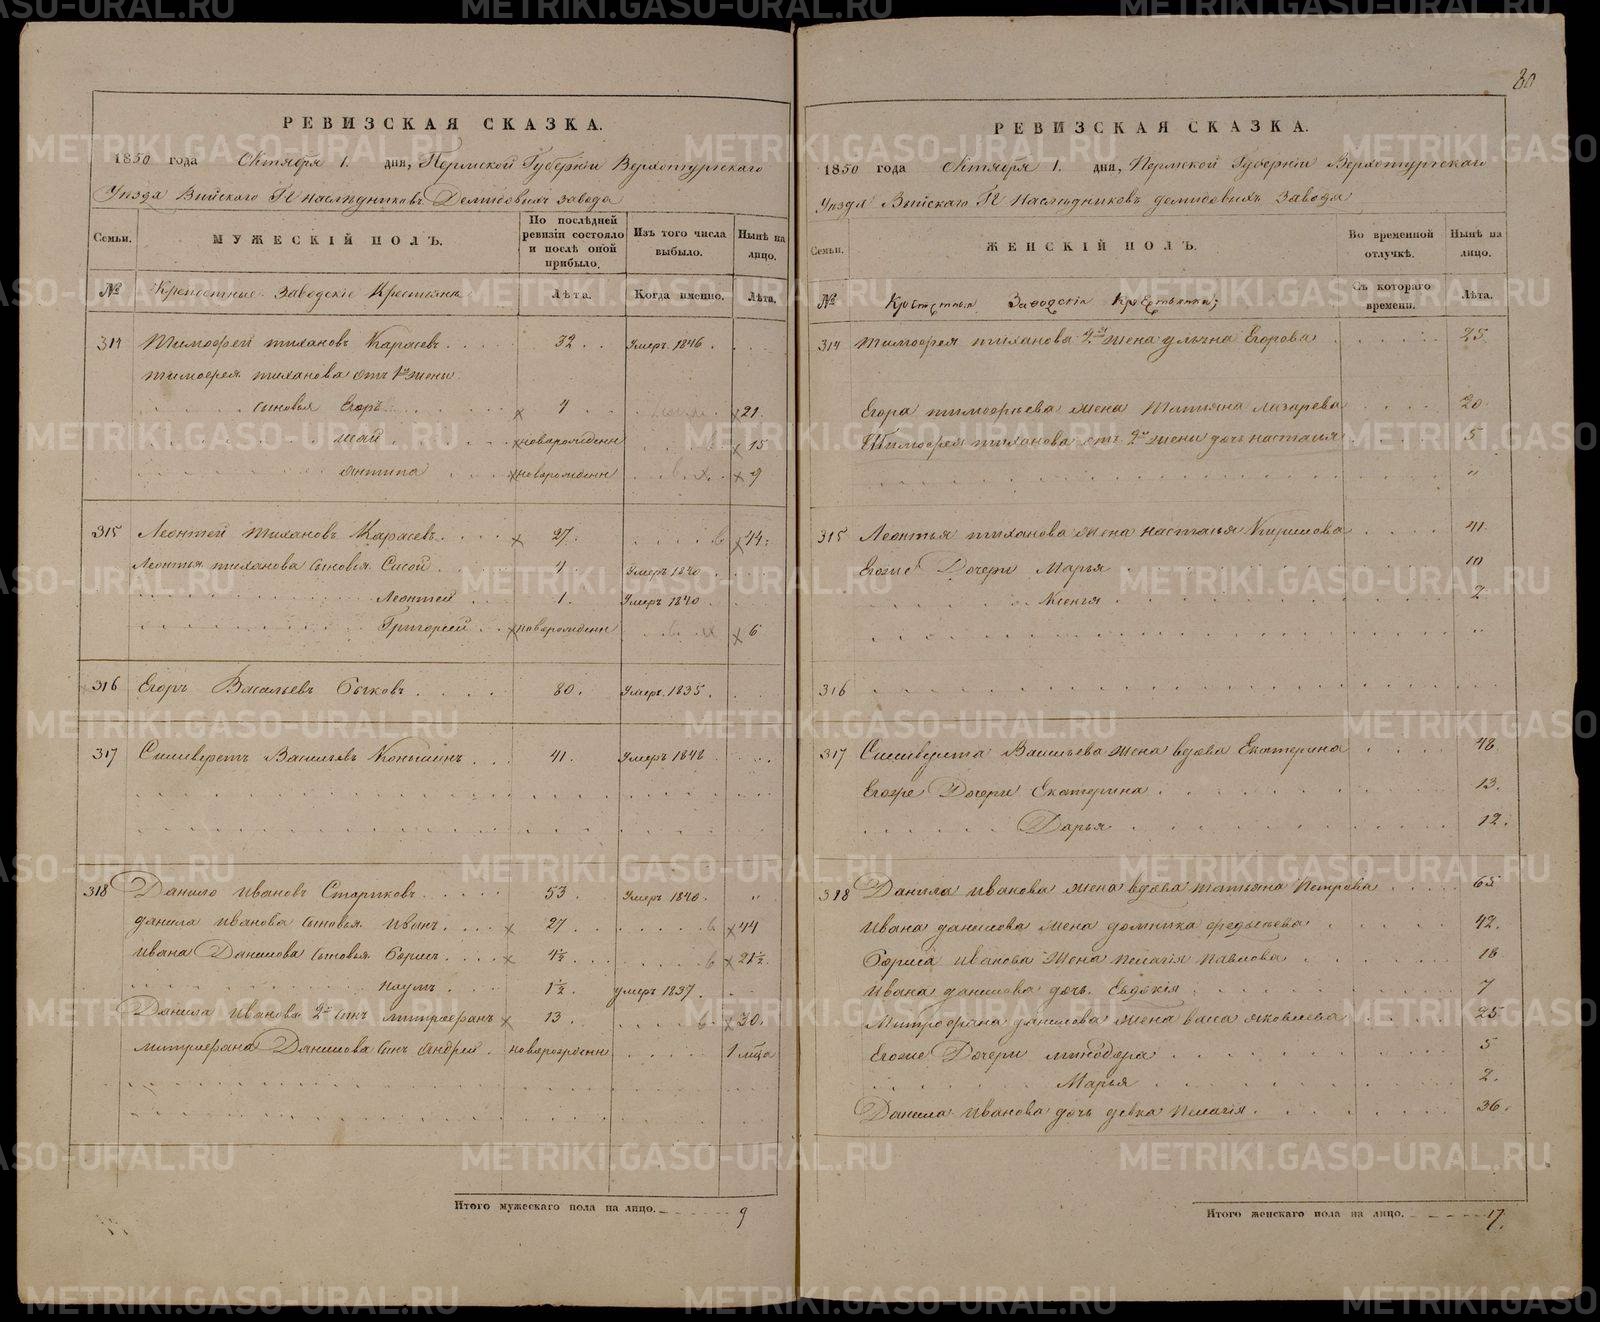 80
РЕВИЗСКАЯ СКАЗКА.
1850 года Октября 1. дня, Пермской Губерніи Верхотурскаго
Уѣзда Выйскаго Гг Наслѣдниковъ Демидовыхъ завода
Семьи.
МУЖЕСКІЙ ПОЛЪ.
По послѣдней ревизіи состояло и послѣ оной прибыло.
Изъ того числа выбыло.
Нынѣ на лицо.
№ Крепостные Заводскіе Крестьяне
Лѣта. Когда именно. Лѣта.
314 Тимофей тихановъ Карасевъ 32 Умеръ 1846
тимофея тиханова отъ 1й жены
сыновья Егоръ 4 21
новарожденн 15
антипа новарожденн 9
315 Леонтей Тихановъ Карасевъ 27 44
Леонтья тиханова сыновья Сысой 4 Умеръ 1840
Леонтей 1 Умеръ 1840
Григорей новарожденн 6
316 Егоръ Васильевъ Быковъ 80 Умеръ 1835
317 Селиверстъ Васильевъ 41 Умеръ 1848
318 Данило Ивановъ Стариковъ 53 Умеръ 1840
данила иванова сыновья Иванъ 27 44
ивана Данилова сыновья Борисъ 4½ 21½
наумъ 1½ умеръ 1837
Данила Иванова 2й сынъ митрофанъ 13 30
митрофана Данилова сынъ андрей новарожденн 1 мѣца
Итого мужескаго пола на лицо. 9
РЕВИЗСКАЯ СКАЗКА.
1850 года Октября 1. дня, Пермской Губерніи Верхотурскаго
Уѣзда Выйскаго Гг Наслѣдниковъ демидовыхъ Завода
Семьи.
ЖЕНСКІЙ ПОЛЪ.
Во временной отлучкѣ.
Нынѣ на лицо.
№ Заводскія Крестьянки;
Съ котораго времени. Лѣта.
314 Тимофея тиханова 2я жена ульяна Егорова 25
Егора тимофѣева жена Татьяна лазарева 20
Тимофея тиханова отъ 2й жены дочь настасия 5
315 Леонтья тиханова жена настасья Кирилова 41
Егоже Дочери Марья 10
Ксенья 2
316
317 Селиверста Васильева жена вдова Екатерина 48
Егоже Дочери Екатерина 13
Дарья 12
318 Данила иванова жена вдова татьяна Петрова 65
ивана данилова жена домника 42
Бориса иванова жена пелагія павлова 18
ивана данилова дочь Евдокія 7
Митрофана данилова жена васа яковлева 25
Егоже Дочери минодора 5
Марья 2
Данила иванова дочь девка пелагія 36
Итого женскаго пола на лицо. 17.
METRIKI.GASO-URAL.RU